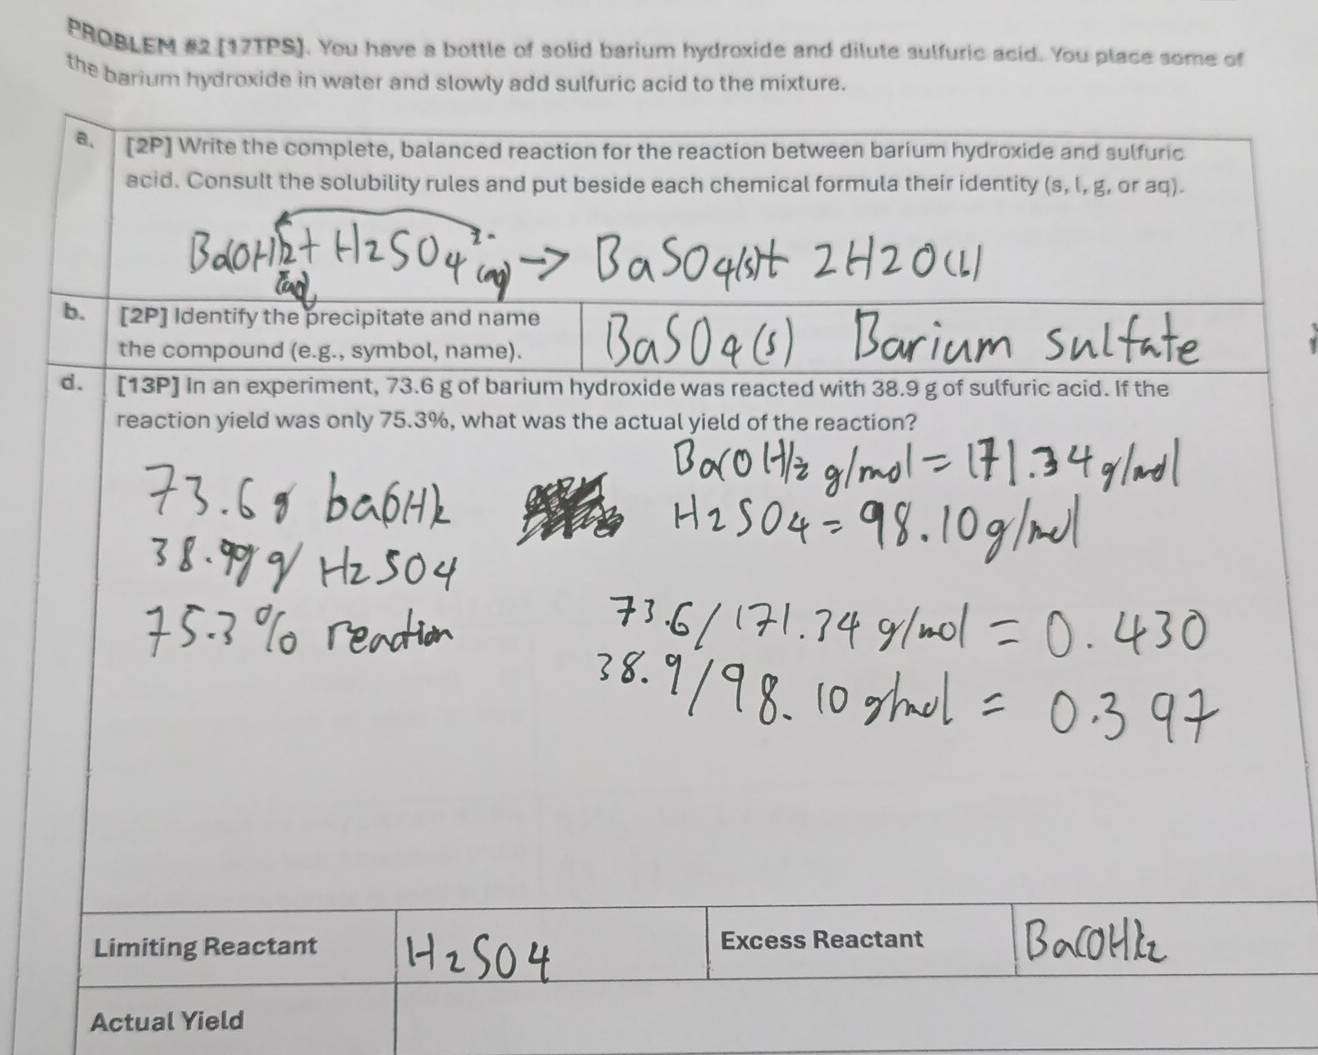 PROBLEM #2 [17TPS]. You have a bottle of solid barium hydroxide and dilute sulfuric acid. You place some of
the barium hydroxide in water and slowly add sulfuric acid to the mixture.
a. [2P] Write the complete, balanced reaction for the reaction between barium hydroxide and sulfuric
acid. Consult the solubility rules and put beside each chemical formula their identity (s, l, g, or aq).
Ba(OH)2 + H2SO4 2- (aq) → BaSO4(s) + 2H2O(l)
(aq)
b. [2P] Identify the precipitate and name
the compound (e.g., symbol, name).
BaSO4(s) Barium sulfate
d. [13P] In an experiment, 73.6 g of barium hydroxide was reacted with 38.9 g of sulfuric acid. If the
reaction yield was only 75.3%, what was the actual yield of the reaction?
Ba(OH)2 g/mol = 171.34 g/mol
73.6 g ba(OH)2
H2SO4 = 98.10 g/mol
g H2SO4
75.3% reaction
73.6/171.34 g/mol = 0.430
38.9/98.10 g/mol = 0.397
Limiting Reactant H2SO4 Excess Reactant Ba(OH)2
Actual Yield